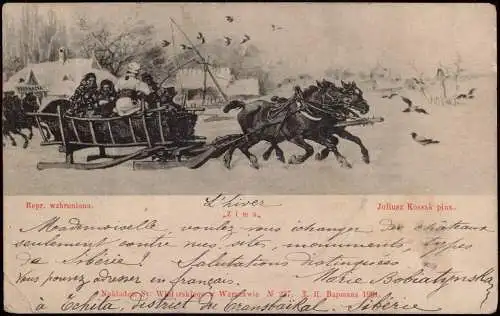 Repr. wzbroniona.
L'hiver
„Zima"
Juliusz Kossak pinx.
Mademoiselle, voulez vous échanger des châteaux
seulement contre mes vues, monuments, types
de la Sibérie! Salutations distinguées
Vous pouvez adresser en français: Marie Bobiatynska
Nakładem St. W. w Warszawie № 2 7. Т. Н. Варшава 19
à Tchita, district du Transbaïkal, Sibérie